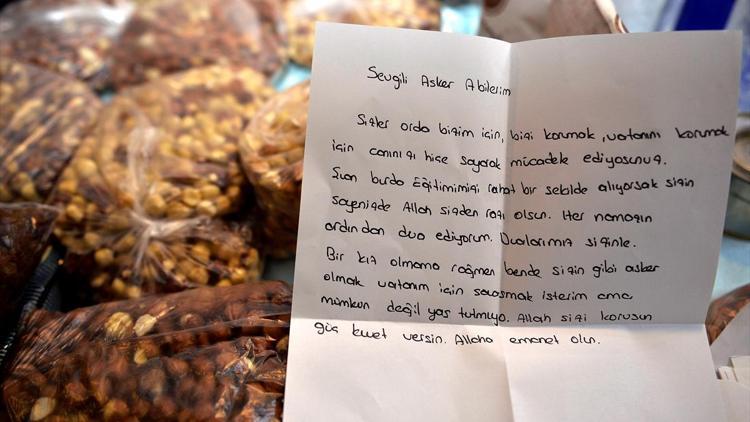 Sevgili Asker Abilerim
Sizler orda bizim için, bizi korumak, vatanını korumak
için canınızı hiçe sayarak mücadele ediyosunuz.
Şuan burda Eğitimimizi rahat bir şekilde alıyorsak sizin
sayenizde Allah sizden razı olsun. Her namazın
ardından dua ediyorum. Dualarımız sizinle.
Bir kız olmama rağmen bende sizin gibi asker
olmak vatanım için savaşmak isterim ama
mümkün değil yaş tutmuyo. Allah sizi korusun
güç kuvvet versin. Allaha emanet olun.